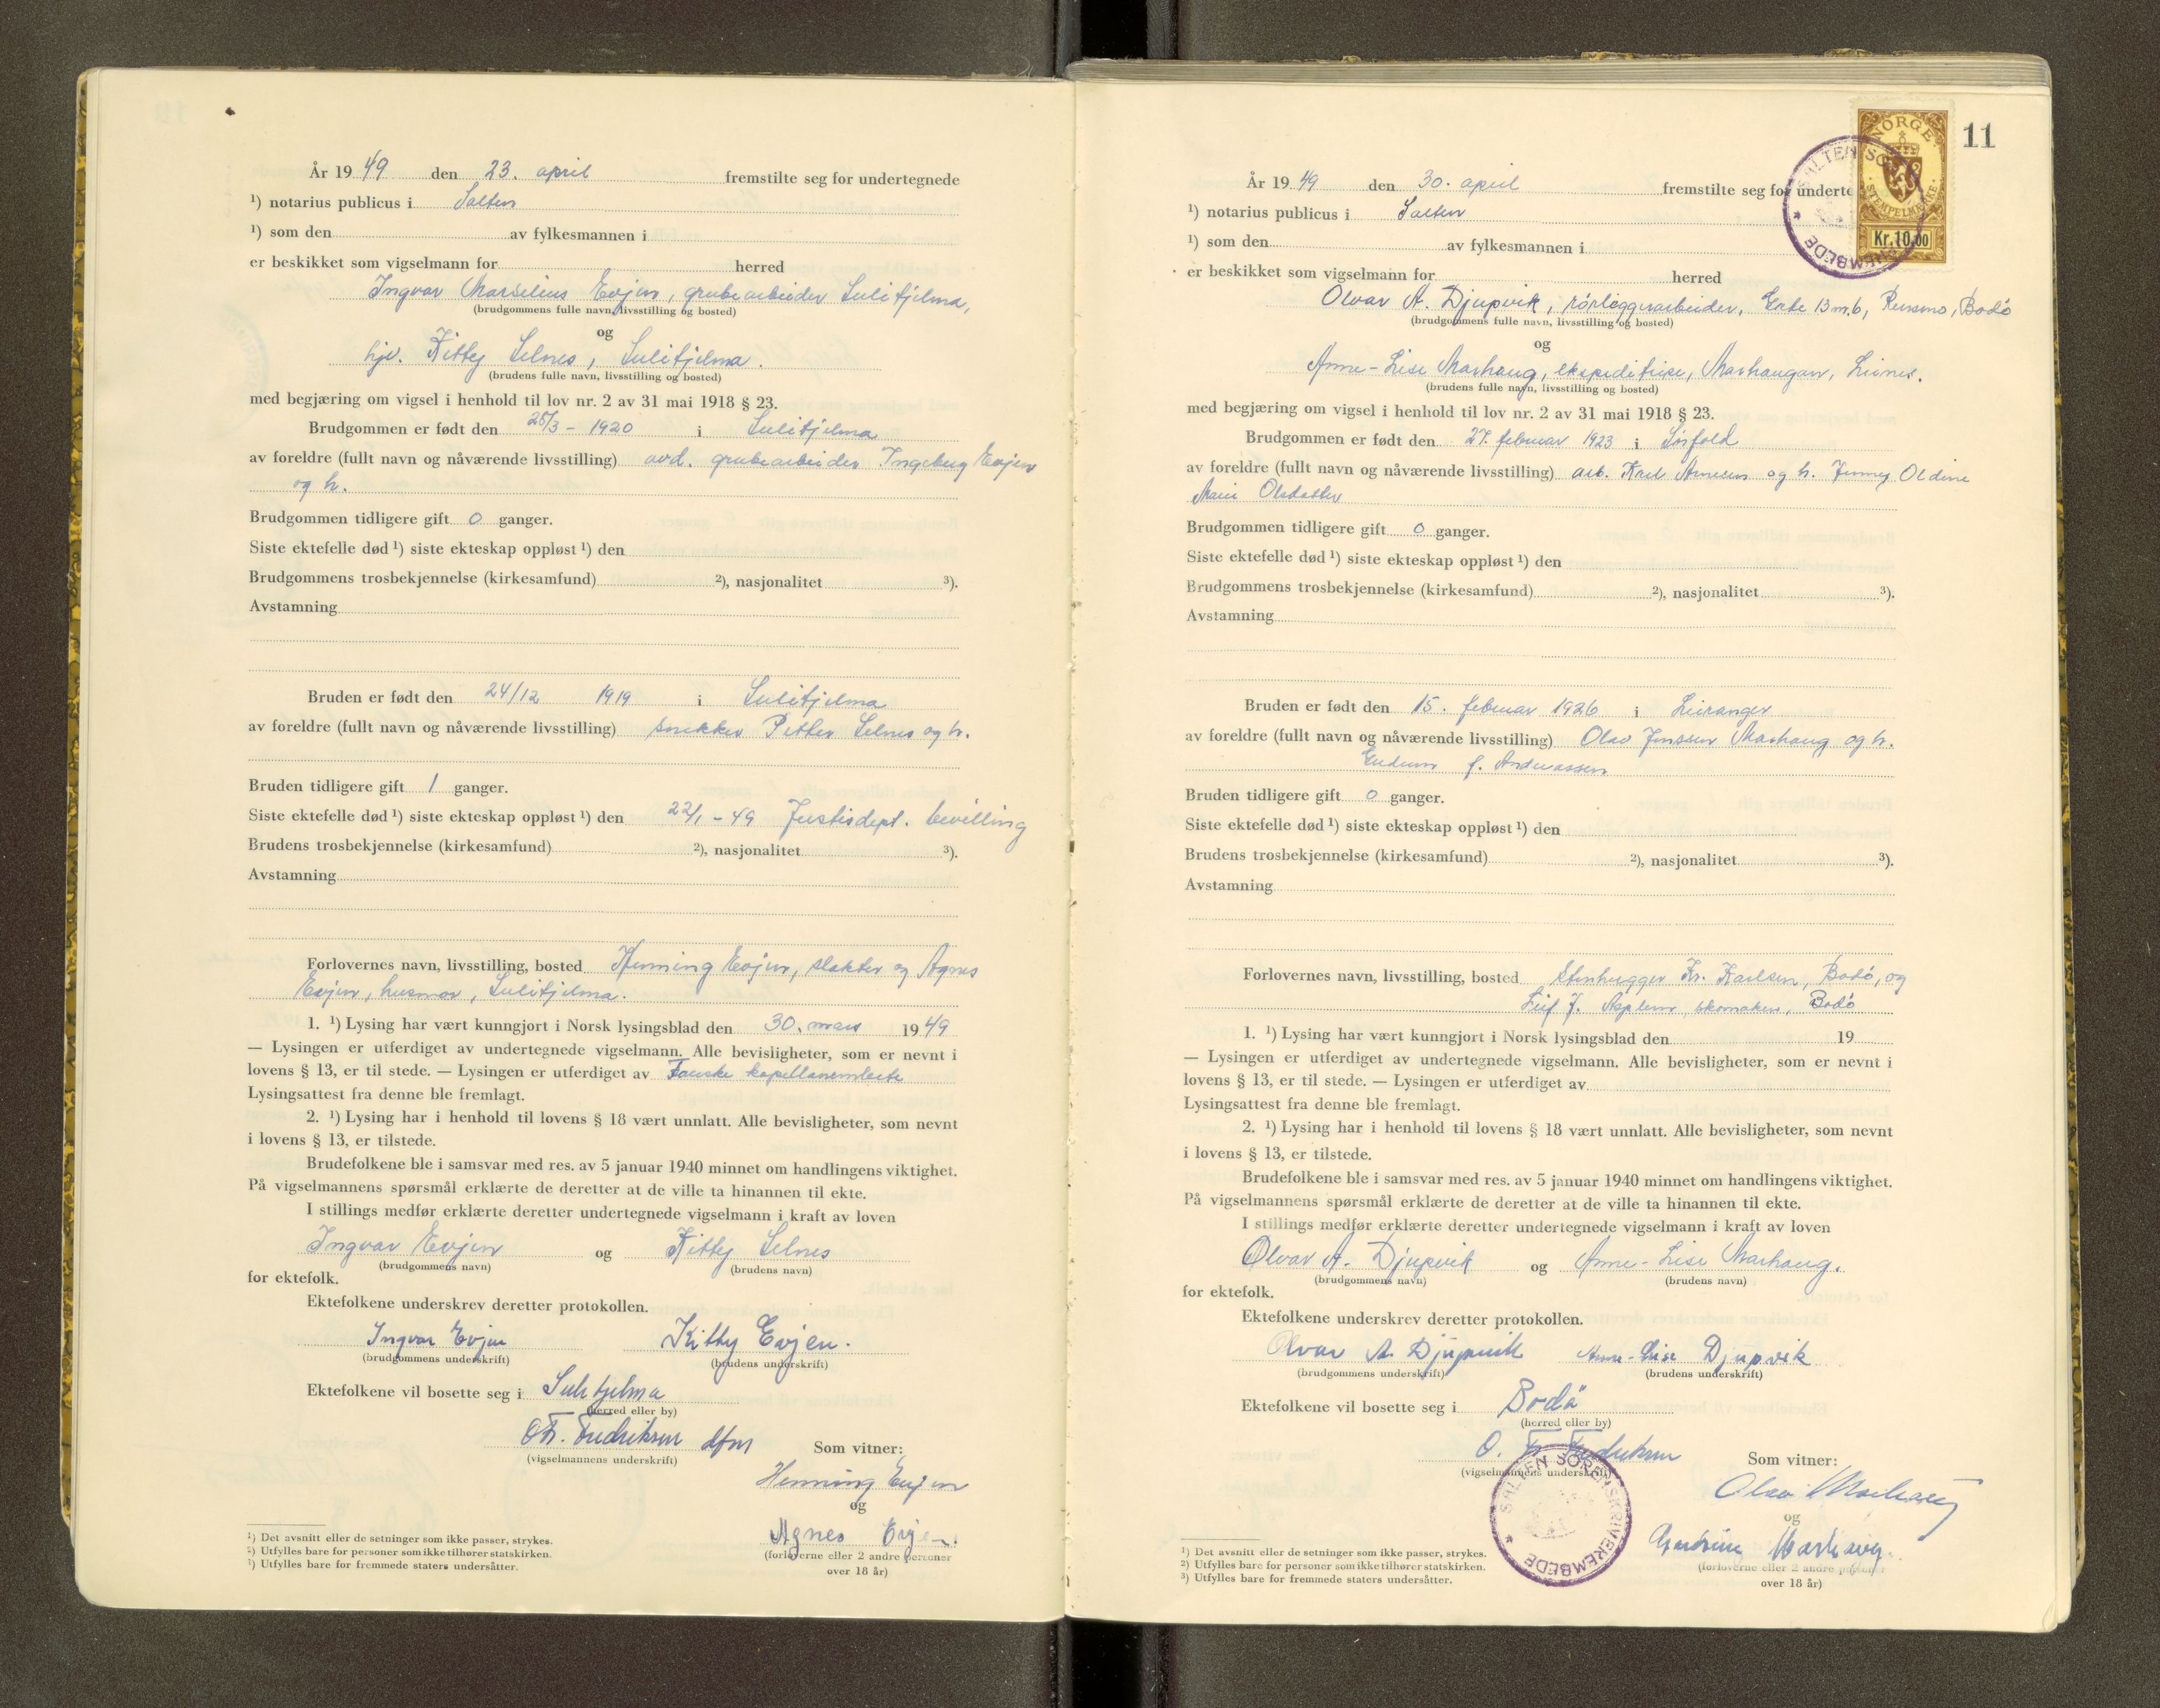 År 19 49 den 23. april fremstilte seg for undertegnede
¹) notarius publicus i Salten
¹) som den av fylkesmannen i
er beskikket som vigselmann for herred
Ingvar Marselius Evjen, grubearbeider Sulitjelma,
(brudgommens fulle navn, livsstilling og bosted)
og
hjv. Kitty Selnes, Sulitjelma.
(brudens fulle navn, livsstilling og bosted)
med begjæring om vigsel i henhold til lov nr. 2 av 31 mai 1918 § 23.
Brudgommen er født den /3 - 1920 i Sulitjelma
av foreldre (fullt navn og nåværende livsstilling) avd. grubearbeider Ingeberg Evjen
og h.
Brudgommen tidligere gift 0 ganger.
Siste ektefelle død ¹) siste ekteskap oppløst ¹) den
Brudgommens trosbekjennelse (kirkesamfund) ²), nasjonalitet ³).
Avstamning
Bruden er født den 24/12 1919 i Sulitjelma
av foreldre (fullt navn og nåværende livsstilling) snekker Petter Selnes og h.
Bruden tidligere gift 1 ganger.
Siste ektefelle død ¹) siste ekteskap oppløst ¹) den 22/1 - 49 Justisdept. bevilling
Brudens trosbekjennelse (kirkesamfund) ²), nasjonalitet ³).
Avstamning
Forlovernes navn, livsstilling, bosted Henning Evjen, slakter og Agnes
Evjen, husmor, Sulitjelma.
1. ¹) Lysing har vært kunngjort i Norsk lysingsblad den 30. mars 19 49
— Lysingen er utferdiget av undertegnede vigselmann. Alle bevisligheter, som er nevnt i
lovens § 13, er til stede. — Lysingen er utferdiget av Fauske kapellanembete
Lysingsattest fra denne ble fremlagt.
2. ¹) Lysing har i henhold til lovens § 18 vært unnlatt. Alle bevisligheter, som nevnt
i lovens § 13, er tilstede.
Brudefolkene ble i samsvar med res. av 5 januar 1940 minnet om handlingens viktighet.
På vigselmannens spørsmål erklærte de deretter at de ville ta hinannen til ekte.
I stillings medfør erklærte deretter undertegnede vigselmann i kraft av loven
Ingvar Evjen og Kitty Selnes
(brudgommens navn) (brudens navn)
for ektefolk.
Ektefolkene underskrev deretter protokollen.
Ingvar Evjen Kitty Evjen.
(brudgommens underskrift) (brudens underskrift)
Ektefolkene vil bosette seg i Sulitjelma
(herred eller by)
O. Fr. Fredriksen dfm
(vigselmannens underskrift) Som vitner:
Henning Evjen
og
Agnes Evjen.
(forloverne eller 2 andre personer
over 18 år)
¹) Det avsnitt eller de setninger som ikke passer, strykes.
²) Utfylles bare for personer som ikke tilhører statskirken.
³) Utfylles bare for fremmede staters undersåtter.
11
NORGE
STEMPELMERKE
Kr. 10,00
SALTEN SORENSKRIVEREMBEDE
År 19 49 den 30. april fremstilte seg for underte
¹) notarius publicus i Salten
¹) som den av fylkesmannen i
er beskikket som vigselmann for herred
Olvar A. Djupvik, rørleggerarbeider, Bodø
(brudgommens fulle navn, livsstilling og bosted)
og
Anne-Lise Marhaug, ekspeditrise, Marhaugan, Leines.
(brudens fulle navn, livsstilling og bosted)
med begjæring om vigsel i henhold til lov nr. 2 av 31 mai 1918 § 23.
Brudgommen er født den 27. februar 1923 i Sørfold
av foreldre (fullt navn og nåværende livsstilling) arb. Karl Arnesen og h. Jenny Oldine
Marie Olsdatter
Brudgommen tidligere gift 0 ganger.
Siste ektefelle død ¹) siste ekteskap oppløst ¹) den
Brudgommens trosbekjennelse (kirkesamfund) ²), nasjonalitet ³).
Avstamning
Bruden er født den 15. februar 1926 i Leiranger
av foreldre (fullt navn og nåværende livsstilling) Olav Jenssen Marhaug og h.
f. Andreassen
Bruden tidligere gift 0 ganger.
Siste ektefelle død ¹) siste ekteskap oppløst ¹) den
Brudens trosbekjennelse (kirkesamfund) ²), nasjonalitet ³).
Avstamning
Forlovernes navn, livsstilling, bosted Stenhugger Kr. Karlsen, Bodø, og
Leif J. skomaker, Bodø
1. ¹) Lysing har vært kunngjort i Norsk lysingsblad den 19
— Lysingen er utferdiget av undertegnede vigselmann. Alle bevisligheter, som er nevnt i
lovens § 13, er til stede. — Lysingen er utferdiget av
Lysingsattest fra denne ble fremlagt.
2. ¹) Lysing har i henhold til lovens § 18 vært unnlatt. Alle bevisligheter, som nevnt
i lovens § 13, er tilstede.
Brudefolkene ble i samsvar med res. av 5 januar 1940 minnet om handlingens viktighet.
På vigselmannens spørsmål erklærte de deretter at de ville ta hinannen til ekte.
I stillings medfør erklærte deretter undertegnede vigselmann i kraft av loven
Olvar A. Djupvik og Anne-Lise Marhaug.
(brudgommens navn) (brudens navn)
for ektefolk.
Ektefolkene underskrev deretter protokollen.
Olvar A. Djupvik Anne-Lise Djupvik
(brudgommens underskrift) (brudens underskrift)
Ektefolkene vil bosette seg i Bodø
(herred eller by)
O. Fr. Fredriksen
(vigselmannens underskrift) Som vitner:
SALTEN SORENSKRIVEREMBEDE
Olav Marhaug
og
Marhaug.
(forloverne eller 2 andre personer
over 18 år)
¹) Det avsnitt eller de setninger som ikke passer, strykes.
²) Utfylles bare for personer som ikke tilhører statskirken.
³) Utfylles bare for fremmede staters undersåtter.